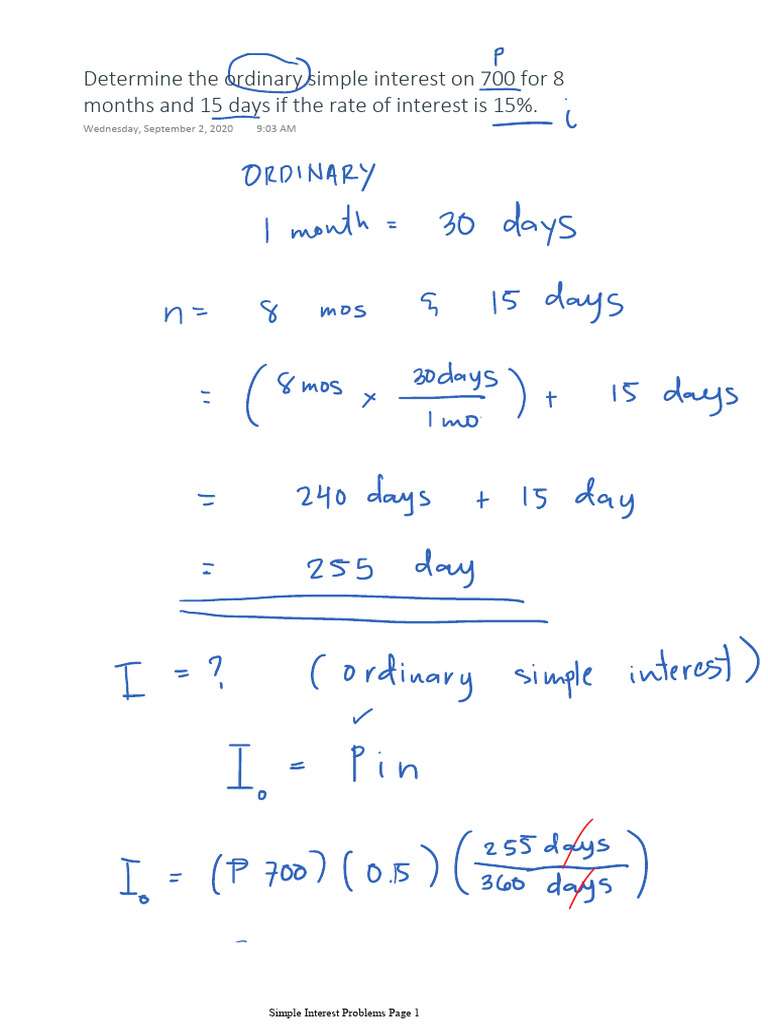 P
Determine the ordinary simple interest on 700 for 8
months and 15 days if the rate of interest is 15%.
i
Wednesday, September 2, 2020 9:03 AM
ORDINARY
1 month = 30 days
n = 8 mos & 15 days
= (8 mos x 30 days / 1 mo) + 15 days
= 240 days + 15 day
= 255 day
I = ? (ordinary simple interest)
✓
I₀ = Pin
I₀ = (₱ 700) (0.15) (255 days / 360 days)
=
Simple Interest Problems Page 1